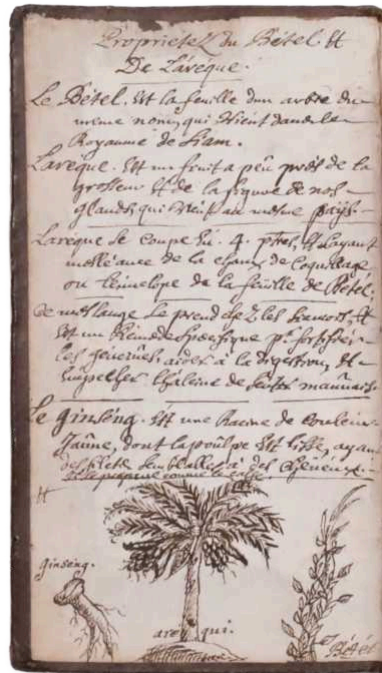 Proprietez du Bétel Et
De L'areque.
Le Bétel. Est la feuille d'un arbre du
meme nom, qui vient dans le
Royaume de Siam.
L'areque. Est un fruit a peu prés de la
grosseur Et de la figure de nos
glands, qui vient au mesme pays.
L'areque se coupe En .4. ptes, Et L'ayant
meslé avec de la chaux de Coquillage
on L'envelope de la feuille de Bétel.
Ce meslange se prend
Est un Remede specifique pr. fortifier
les gencives, aider à la digestion, Et
Empescher L'haleine de sentir mauvais.
Le ginséng. Est une Racine de Couleur
Jaûne, dont la poûlpe Est lisse, ayant
des filets semblables à des Cheveux.
Et se prepare comme le
ginseng.
arequi.
Bétel